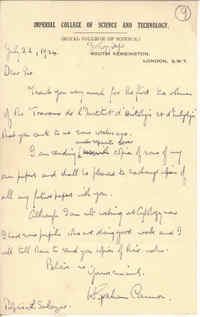 9
IMPERIAL COLLEGE OF SCIENCE AND TECHNOLOGY.
(ROYAL COLLEGE OF SCIENCE.)
SOUTH KENSINGTON,
July 22, 1924. LONDON, S.W.7.
Dear Sir
Thank you very much for the first volumes
of the "Travaux de l'Institut
that you sent to me some weeks ago.
I am sending copies of some of my
own papers and shall be pleased to exchange copies of
all my future papers with you.
Although I am not working at
I have some pupils who are doing good work and I
will tell them to send you copies of their
Believe me
Yours sincerely,
H Graham Cannon.